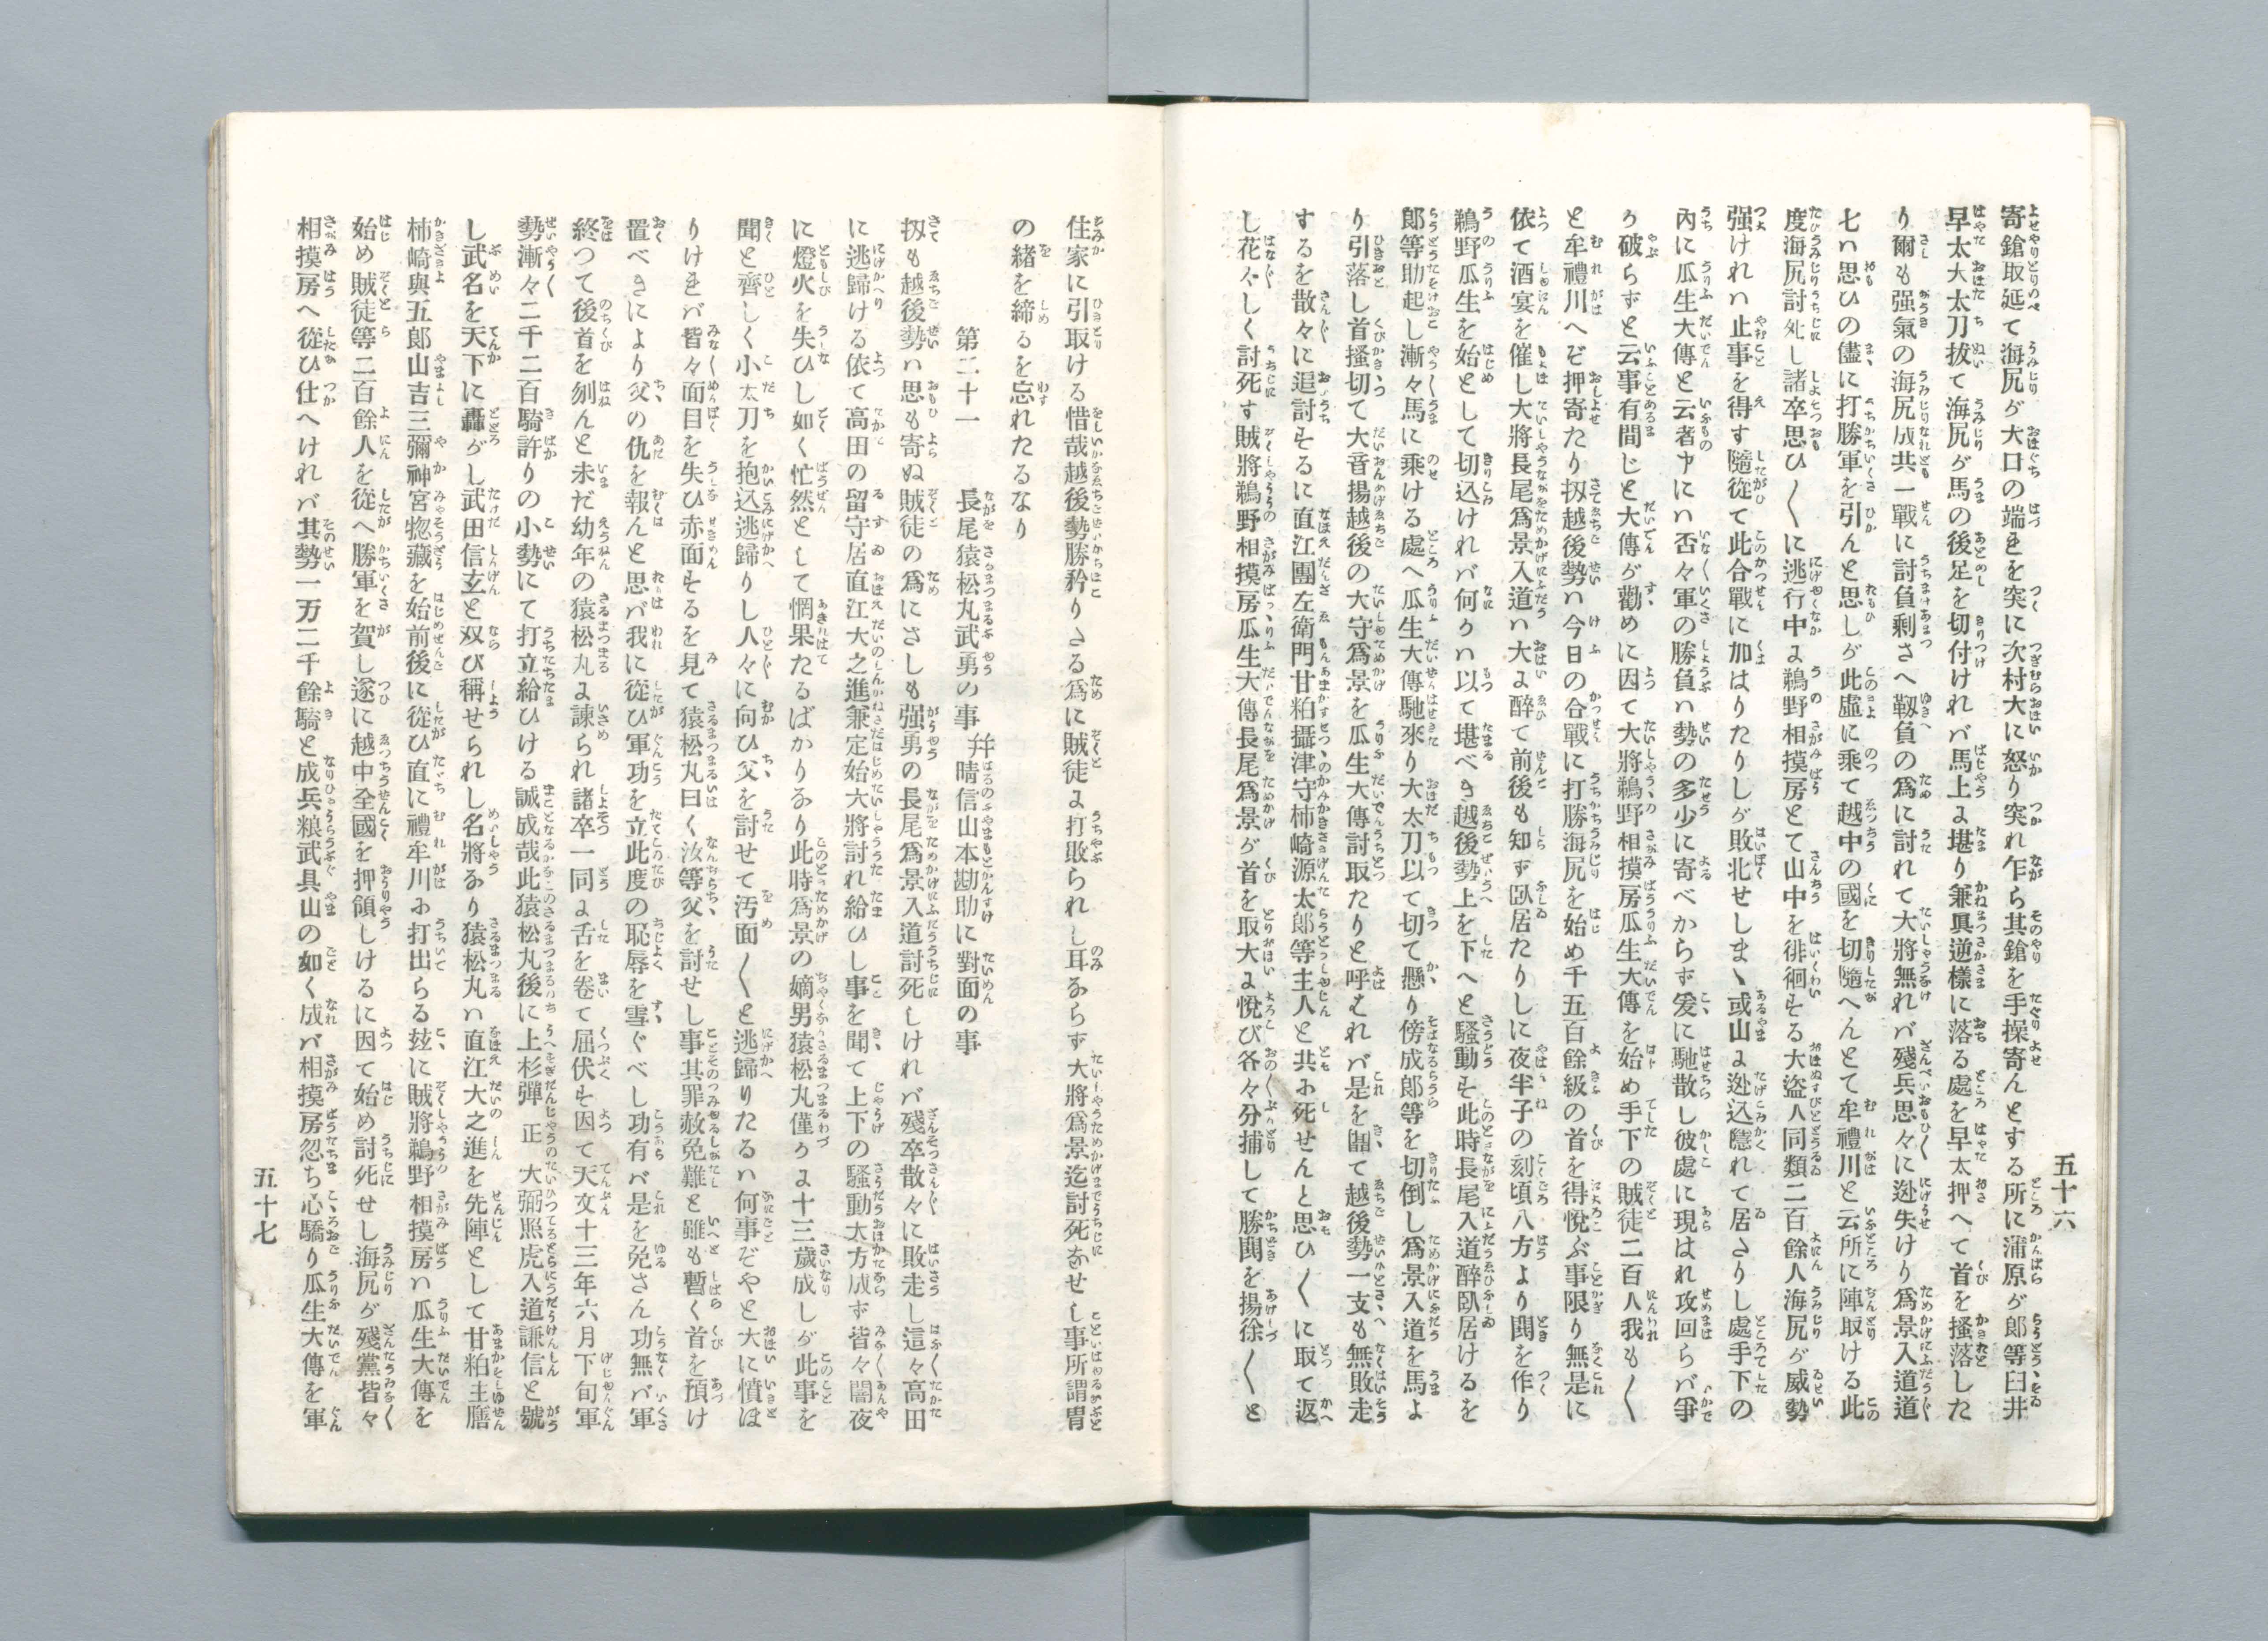 五十六
寄鎗取延て海尻が大口の端𛀁を突に次村大に怒り突れ乍ら其鎗を手操寄んとする所に蒲原が郎等臼井
早太大太刀拔て海尻が馬の後足を切付けれバ馬上よ堪り兼眞逆樣に落る處を早太押へて首を掻落した
り爾も强氣の海尻成共一戰に討負剩さへ靱負の爲に討れて大將無れバ殘兵思々に迯失けり爲景入道道
七ハ思ひの儘に打勝軍を引んと思しが此虛に乘て越中の國を切隨へんとて牟禮川と云所に陣取ける此
度海尻討死し諸卒思ひ〱に逃行中よ鵜野相摸房とて山中を徘徊する大盜人同類二百餘人海尻が威勢
强けれハ止事を得ず隨從て此合戰に加はりたりしが敗北せしまヽ或山よ迯込隱れて居さりし處手下の
內に瓜生大傳と云者中にハ否々軍の勝負ハ勢の多少に寄べからず爰に馳散し彼處に現はれ攻回らバ爭
か破らずと云事有間じと大傳が勸めに因て大將鵜野相摸房瓜生大傳を始め手下の賊徒二百人我も〱
と牟禮川へぞ押寄たり扨越後勢ハ今日の合戰に打勝海尻を始め千五百餘級の首を得悅ぶ事限り無是に
依て酒宴を催し大將長尾爲景入道ハ大よ醉て前後も知ず臥居たりしに夜半子の刻頃八方より鬨を作り
鵜野瓜生を始として切込けれバ何かハ以て堪べき越後勢上を下へと騷動す此時長尾入道醉臥居けるを
郎等助起し漸々馬に乘ける處へ瓜生大傳馳來り大太刀以て切て懸り傍成郎等を切倒し爲景入道を馬よ
り引落し首搔切て大音揚越後の大守爲景を瓜生大傳討取たりと呼むれバ是を聞て越後勢一支も無敗走
するを散々に追討するに直江團左衛門甘粕攝津守柿崎源太郎等主人と共お死せんと思ひ〱に取て返
し花々しく討死す賊將鵜野相摸房瓜生大傳長尾爲景が首を取大よ悅び各々分捕して勝鬨を揚徐〱と
住家に引取ける惜哉越後勢勝矜りさる爲に賊徒よ打敗られし耳ならす大將爲景迄討死おせし事所謂冑
の緖を締るを忘れたるなり
第二十一　長尾猿松丸武勇の事幷晴信山本勘助に對面の事
扨も越後勢ハ思も寄ぬ賊徒の爲にさしも强勇の長尾爲景入道討死しけれバ殘卒散々に敗走し這々高田
に逃歸ける依て高田の留守居直江大之進兼定始大將討れ給ひし事を聞て上下の騷動大方成ず皆々闇夜
に燈火を失ひし如く忙然として惘果たるばかりなり此時爲景の嫡男猿松丸僅かよ十三歲成しが此事を
聞と齊しく小太刀を抱込逃歸りし人々に向ひ父を討せて汚面〱と逃歸りたるハ何事ぞやと大に憤ほ
りけ𛀁バ皆々面目を失ひ赤面するを見て猿松丸曰く汝等父を討せし事其罪赦免難と雖も暫く首を預け
置べきにより父の仇を報んと思バ我に從ひ軍功を立此度の恥辱を雪ぐべし功有バ是を免さん功無バ軍
終つて後首を刎んと未だ幼年の猿松丸よ諫られ諸卒一同よ舌を卷て屈伏す因て天文十三年六月下旬軍
勢漸々二千二百騎許りの小勢にて打立給ひける誠成哉此猿松丸後に上杉彈正大弼照虎入道謙信と號
し武名を天下に轟がし武田信玄と双び稱せられし名將なり猿松丸ハ直江大之進を先陣として甘粕主膳
柿崎與五郎山吉三彌神宮惣藏を始前後に從ひ直に禮牟川お打出らる玆に賊將鵜野相摸房ハ瓜生大傳を
始め賊徒等二百餘人を從へ勝軍を賀し遂に越中全國を押領しけるに因て始め討死せし海尻が殘黨皆々
相摸房へ從ひ仕へけれバ其勢一万二千餘騎と成兵粮武具山の如く成バ相摸房忽ち心驕り瓜生大傳を軍
五十七